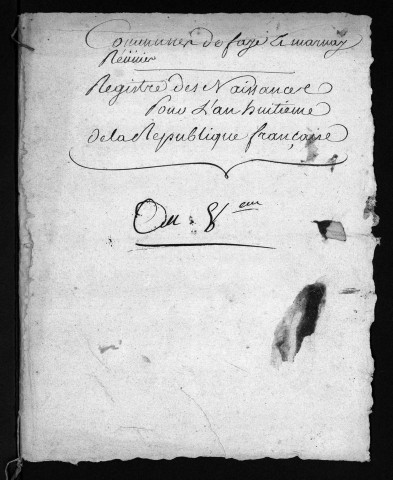 Communes de faye & marnay
Réunies
Registre des Naissance
Pour L'an huitieme
de la Republique française
An 8 eme